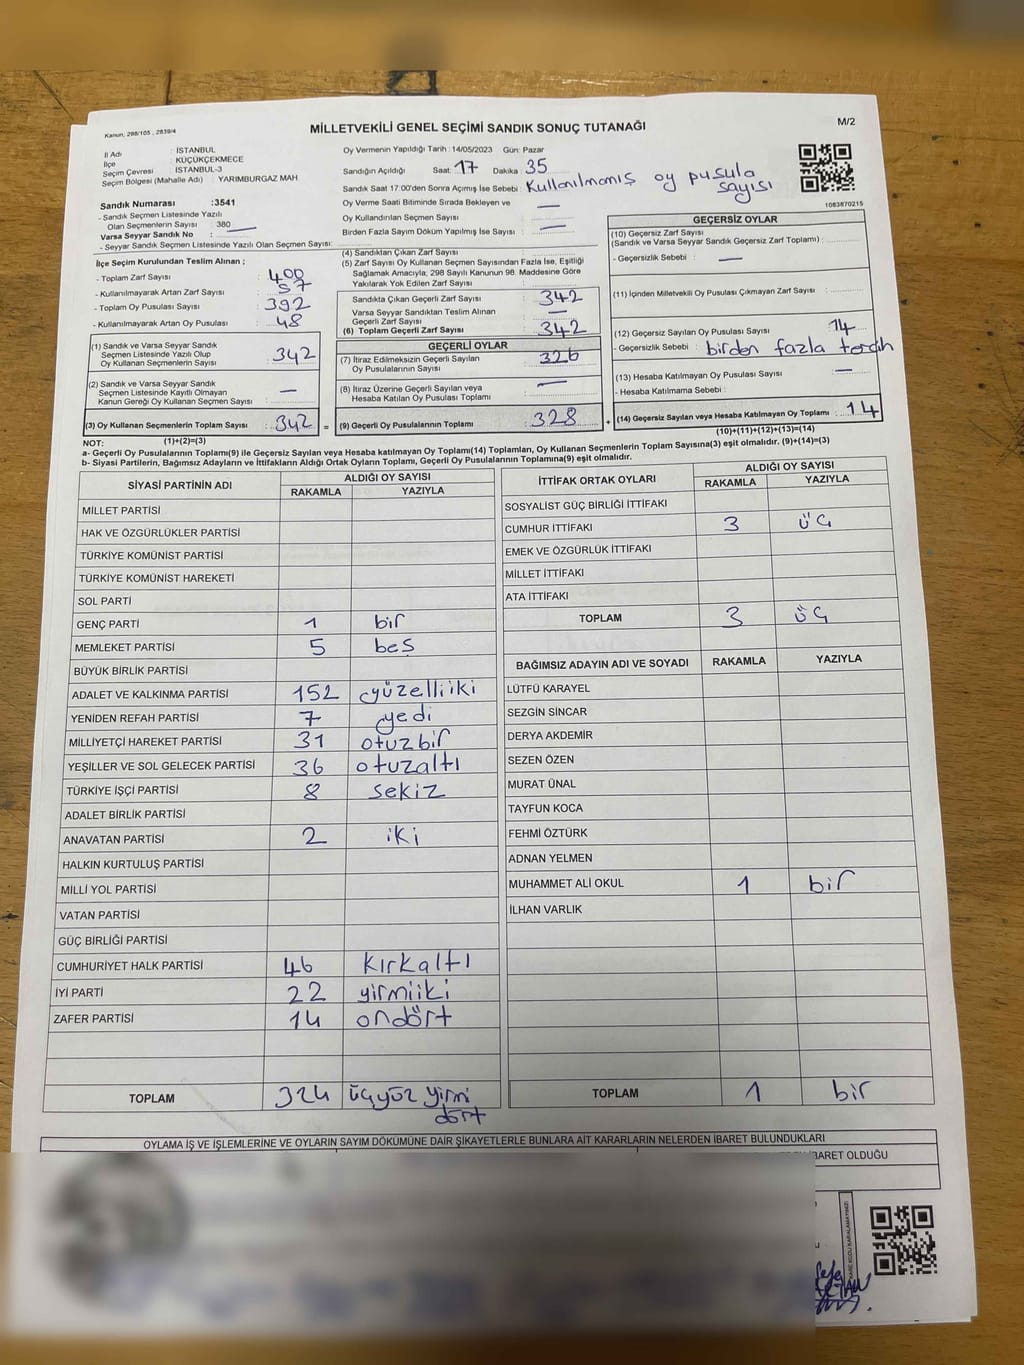 Kanun, 298/105 , 2839/4
MİLLETVEKİLİ GENEL SEÇİMİ SANDIK SONUÇ TUTANAĞI
M/2
İl Adı : İSTANBUL
İlçe : KÜÇÜKÇEKMECE
Seçim Çevresi : İSTANBUL-3
Seçim Bölgesi (Mahalle Adı) : YARIMBURGAZ MAH
Sandık Numarası :3541
- Sandık Seçmen Listesinde Yazılı
Olan Seçmenlerin Sayısı : 380
Varsa Seyyar Sandık No :
- Seyyar Sandık Seçmen Listesinde Yazılı Olan Seçmen Sayısı:
Oy Vermenin Yapıldığı Tarih :14/05/2023 Gün: Pazar
Sandığın Açıldığı Saat: 17 Dakika : 35
Sandık Saat 17:00'den Sonra Açımış İse Sebebi : Kullanılmamış oy pusula
sayısı
Oy Verme Saati Bitiminde Sırada Bekleyen ve : —
Oy Kullandırılan Seçmen Sayısı :
Birden Fazla Sayım Döküm Yapılmış İse Sayısı : —
1083870215
İlçe Seçim Kurulundan Teslim Alınan ;
- Toplam Zarf Sayısı : 400
- Kullanılmayarak Artan Zarf Sayısı : 57
- Toplam Oy Pusulası Sayısı : 392
- Kullanılmayarak Artan Oy Pusulası : 48
(1) Sandık ve Varsa Seyyar Sandık
Seçmen Listesinde Yazılı Olup
Oy Kullanan Seçmenlerin Sayısı : 342
(2) Sandık ve Varsa Seyyar Sandık
Seçmen Listesinde Kayıtlı Olmayan
Kanun Gereği Oy Kullanan Seçmen Sayısı : —
(3) Oy Kullanan Seçmenlerin Toplam Sayısı : 342 =
(1)+(2)=(3)
(4) Sandıktan Çıkan Zarf Sayısı :
(5) Zarf Sayısı Oy Kullanan Seçmen Sayısından Fazla İse, Eşitliği
Sağlamak Amacıyla; 298 Sayılı Kanunun 98. Maddesine Göre
Yakılarak Yok Edilen Zarf Sayısı :
Sandıkta Çıkan Geçerli Zarf Sayısı : 342
Varsa Seyyar Sandıktan Teslim Alınan
Geçerli Zarf Sayısı : —
(6) Toplam Geçerli Zarf Sayısı : 342
GEÇERLİ OYLAR
(7) İtiraz Edilmeksizin Geçerli Sayılan
Oy Pusulalarının Sayısı : 326
(8) İtiraz Üzerine Geçerli Sayılan veya
Hesaba Katılan Oy Pusulası Toplamı : —
(9) Geçerli Oy Pusulalarının Toplamı : 328 +
GEÇERSİZ OYLAR
(10) Geçersiz Zarf Sayısı
(Sandık ve Varsa Seyyar Sandık Geçersiz Zarf Toplamı) :
- Geçersizlik Sebebi : —
(11) İçinden Milletvekili Oy Pusulası Çıkmayan Zarf Sayısı :
(12) Geçersiz Sayılan Oy Pusulası Sayısı : 14
- Geçersizlik Sebebi : birden fazla tercih
(13) Hesaba Katılmayan Oy Pusulası Sayısı : —
- Hesaba Katılmama Sebebi :
(14) Geçersiz Sayılan veya Hesaba Katılmayan Oy Toplamı : 14
(10)+(11)+(12)+(13)=(14)
NOT:
a- Geçerli Oy Pusulalarının Toplamı(9) ile Geçersiz Sayılan veya Hesaba katılmayan Oy Toplamı(14) Toplamları, Oy Kullanan Seçmenlerin Toplam Sayısına(3) eşit olmalıdır. (9)+(14)=(3)
b- Siyasi Partilerin, Bağımsız Adayların ve İttifakların Aldığı Ortak Oyların Toplamı, Geçerli Oy Pusulalarının Toplamına(9) eşit olmalıdır.
SİYASİ PARTİNİN ADI ALDIĞI OY SAYISI
RAKAMLA YAZIYLA
MİLLET PARTİSİ
HAK VE ÖZGÜRLÜKLER PARTİSİ
TÜRKİYE KOMÜNİST PARTİSİ
TÜRKİYE KOMÜNİST HAREKETİ
SOL PARTİ
GENÇ PARTİ 1 bir
MEMLEKET PARTİSİ 5 beş
BÜYÜK BİRLİK PARTİSİ
ADALET VE KALKINMA PARTİSİ 152 yüzelliiki
YENİDEN REFAH PARTİSİ 7 yedi
MİLLİYETÇİ HAREKET PARTİSİ 31 otuzbir
YEŞİLLER VE SOL GELECEK PARTİSİ 36 otuzaltı
TÜRKİYE İŞÇİ PARTİSİ 8 sekiz
ADALET BİRLİK PARTİSİ
ANAVATAN PARTİSİ 2 iki
HALKIN KURTULUŞ PARTİSİ
MİLLİ YOL PARTİSİ
VATAN PARTİSİ
GÜÇ BİRLİĞİ PARTİSİ
CUMHURİYET HALK PARTİSİ 46 kırkaltı
İYİ PARTİ 22 yirmiiki
ZAFER PARTİSİ 14 ondört
TOPLAM 324 üçyüz yirmi
dört
İTTİFAK ORTAK OYLARI ALDIĞI OY SAYISI
RAKAMLA YAZIYLA
SOSYALİST GÜÇ BİRLİĞİ İTTİFAKI
CUMHUR İTTİFAKI 3 üç
EMEK VE ÖZGÜRLÜK İTTİFAKI
MİLLET İTTİFAKI
ATA İTTİFAKI
TOPLAM 3 üç
BAĞIMSIZ ADAYIN ADI VE SOYADI RAKAMLA YAZIYLA
LÜTFÜ KARAYEL
SEZGİN SİNCAR
DERYA AKDEMİR
SEZEN ÖZEN
MURAT ÜNAL
TAYFUN KOCA
FEHMİ ÖZTÜRK
ADNAN YELMEN
MUHAMMET ALİ OKUL 1 bir
İLHAN VARLIK
TOPLAM 1 bir
OYLAMA İŞ VE İŞLEMLERİNE VE OYLARIN SAYIM DÖKÜMÜNE DAİR ŞİKAYETLERLE BUNLARA AİT KARARLARIN NELERDEN İBARET BULUNDUKLARI
İBARET OLDUĞU